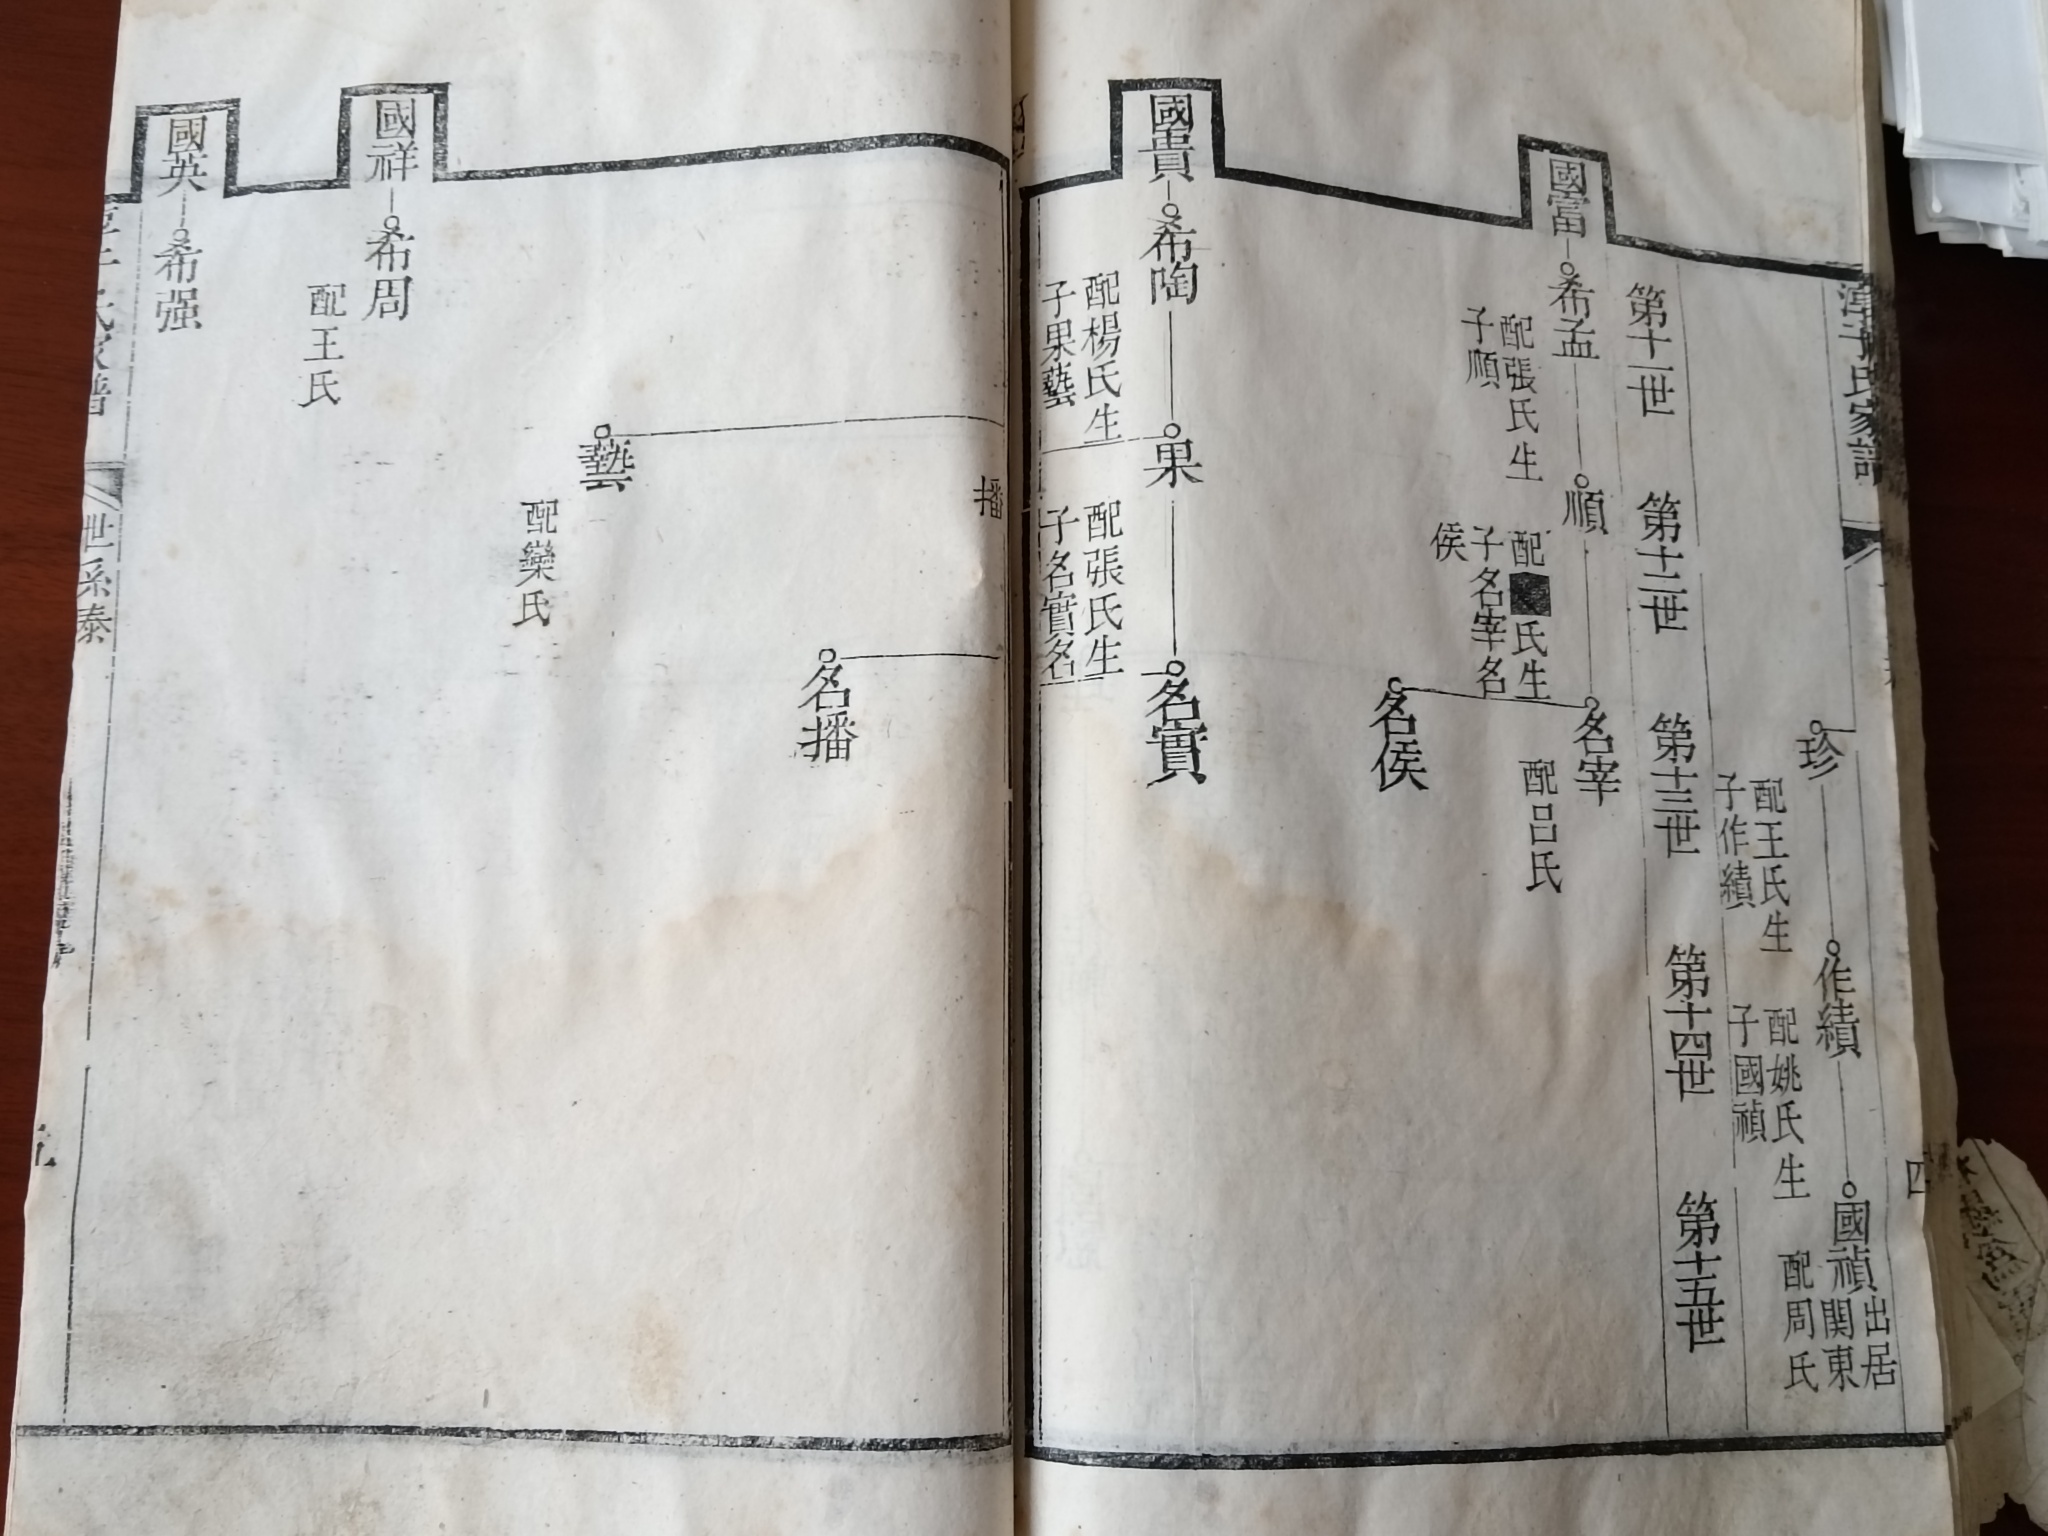 淳于氏家譜
四
珍
配王氏生
子作績
作績
配姚氏生
子國禎
國禎
出居
關東
配周氏
第十一世
第十二世
第十三世
第十四世
第十五世
國富
希孟
配張氏生
子順
順
配
氏生
子名宰名
侯
名宰
配呂氏
名侯
國貴
希陶
配楊氏生
子果藝
果
配張氏生
子名實名
播
名實
名播
藝
配欒氏
國祥
希周
配王氏
國英
希强
淳于氏家譜
世系泰